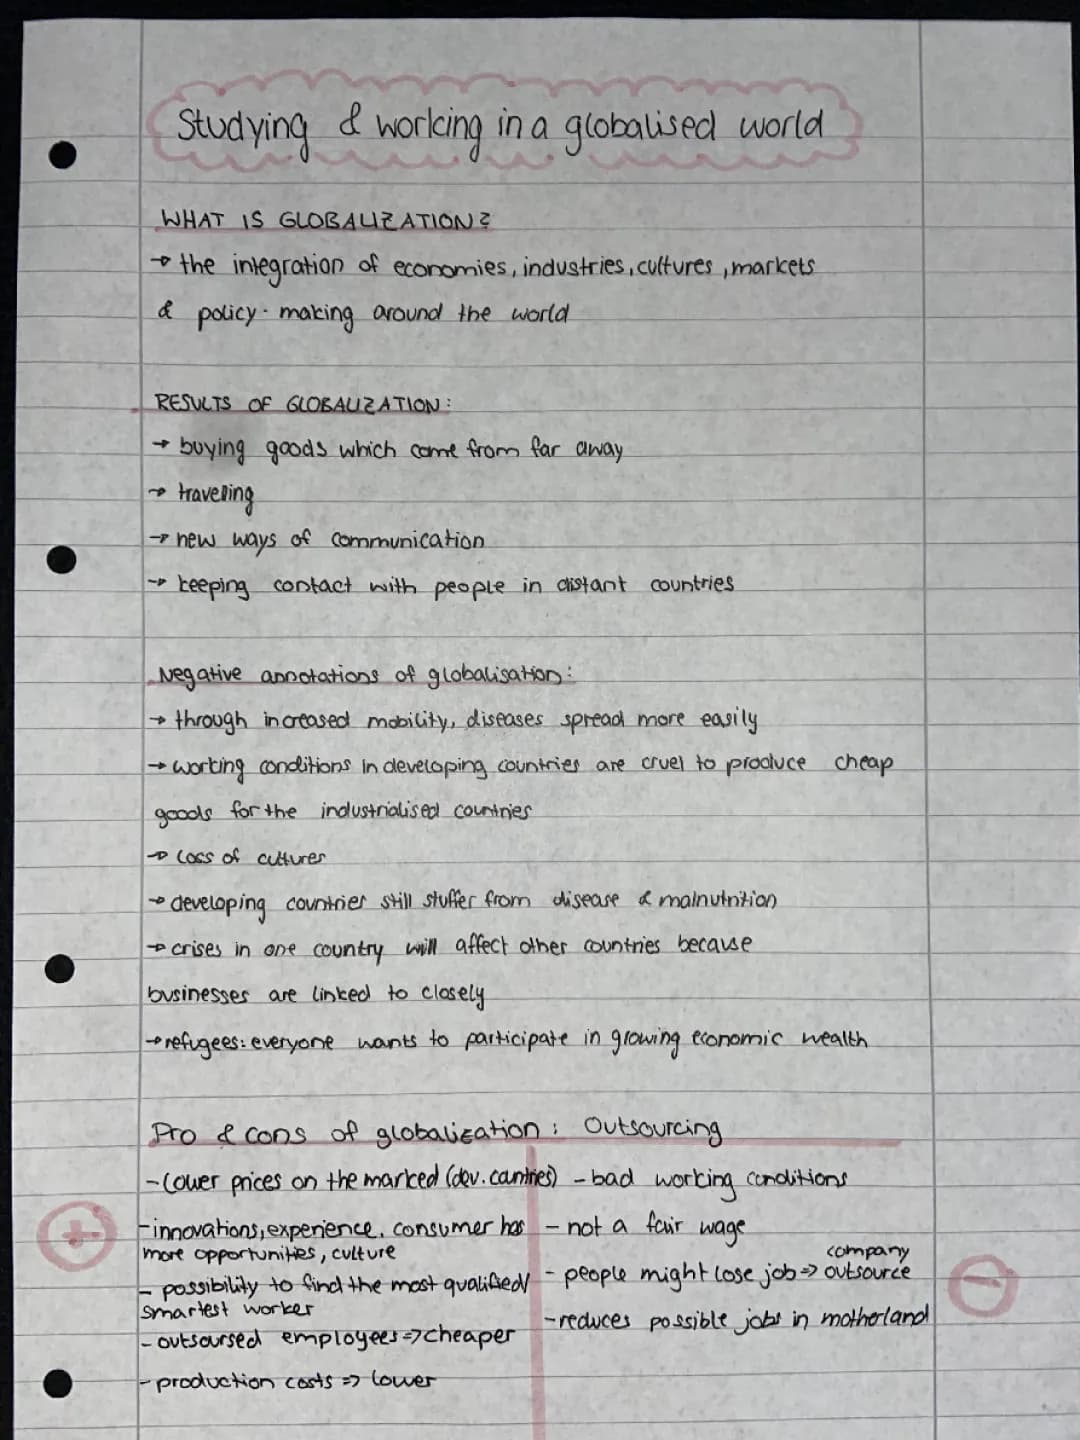 Studying & working in a globalised world
WHAT IS GLOBALIZATION?
→ the integration of economies, industries, cultures, markets
& policy-making around the world
RESULTS OF GLOBALIZATION:
→ buying goods which come from far away
→ traveling
→ new ways of communication
→ keeping contact with people in distant countries
Negative annotations of globalisation:
→ through increased mobility, diseases spread more easily
→ working conditions in developing countries are cruel to produce cheap
goods for the industrialised countries
→ loss of cultures
→ developing countries still stuffer from disease & malnutrition
→ crises in one country will affect other countries because
businesses are linked to closely
→ refugees: everyone wants to participate in growing economic wealth
Pro & cons of globalization: Outsourcing
- lower prices on the marked (dev. cantries)
- innovations, experience, consumer has
more opportunities, culture
- possibility to find the most qualified/
smartest worker
- outsoursed employees => cheaper
- production costs => lower
+
- bad working conditions
- not a fair wage
- people might lose job => company outsource
- reduces possible jobs in motherland
-